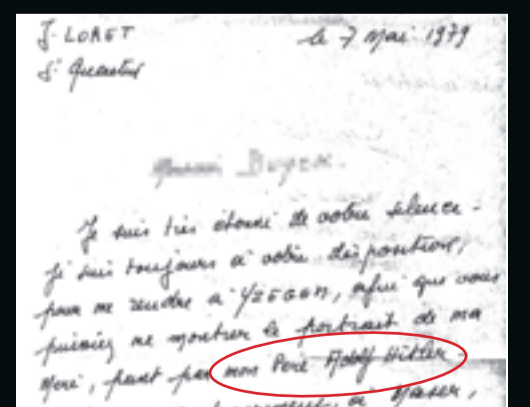 J. LORET
le 7 Mai 1979
St Quentin
Monsieur
Je suis très étonné de votre silence.
Je suis toujours à votre disposition,
pour me rendre à YZEGEM, afin que vous
puissiez me montrer le portrait de ma
Mère, peint par mon Père Adolf Hitler